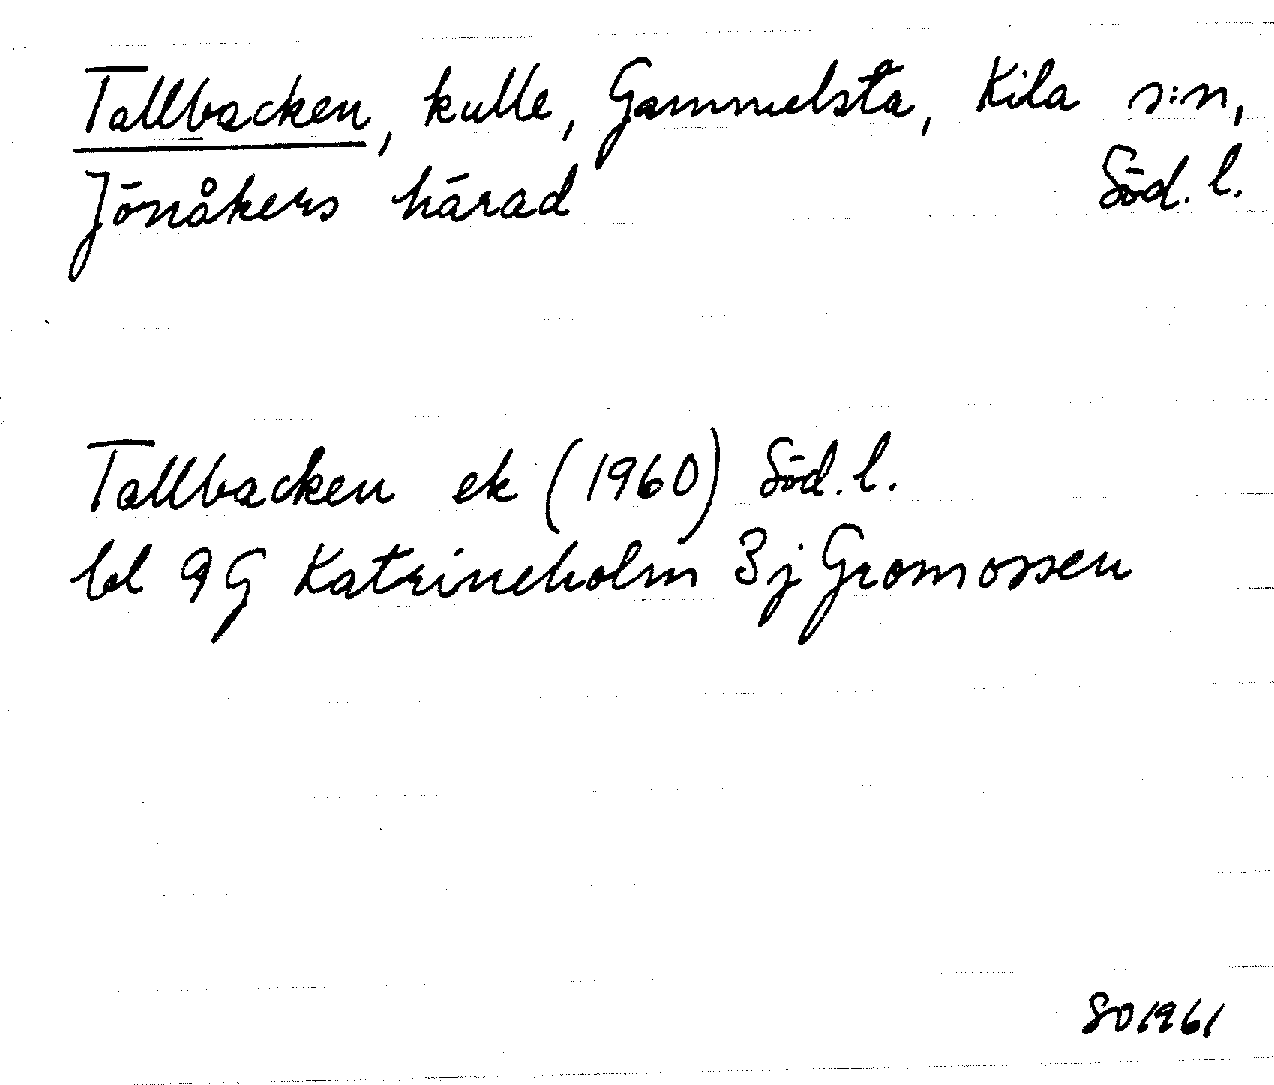 Tallbacken, kulle, Gammelsta, Kila s:n,
Jönåkers härad Söd. l.
Tallbacken ek (1960) Söd. l.
bl 9G Katrineholm 3j Gromossen
SO1961